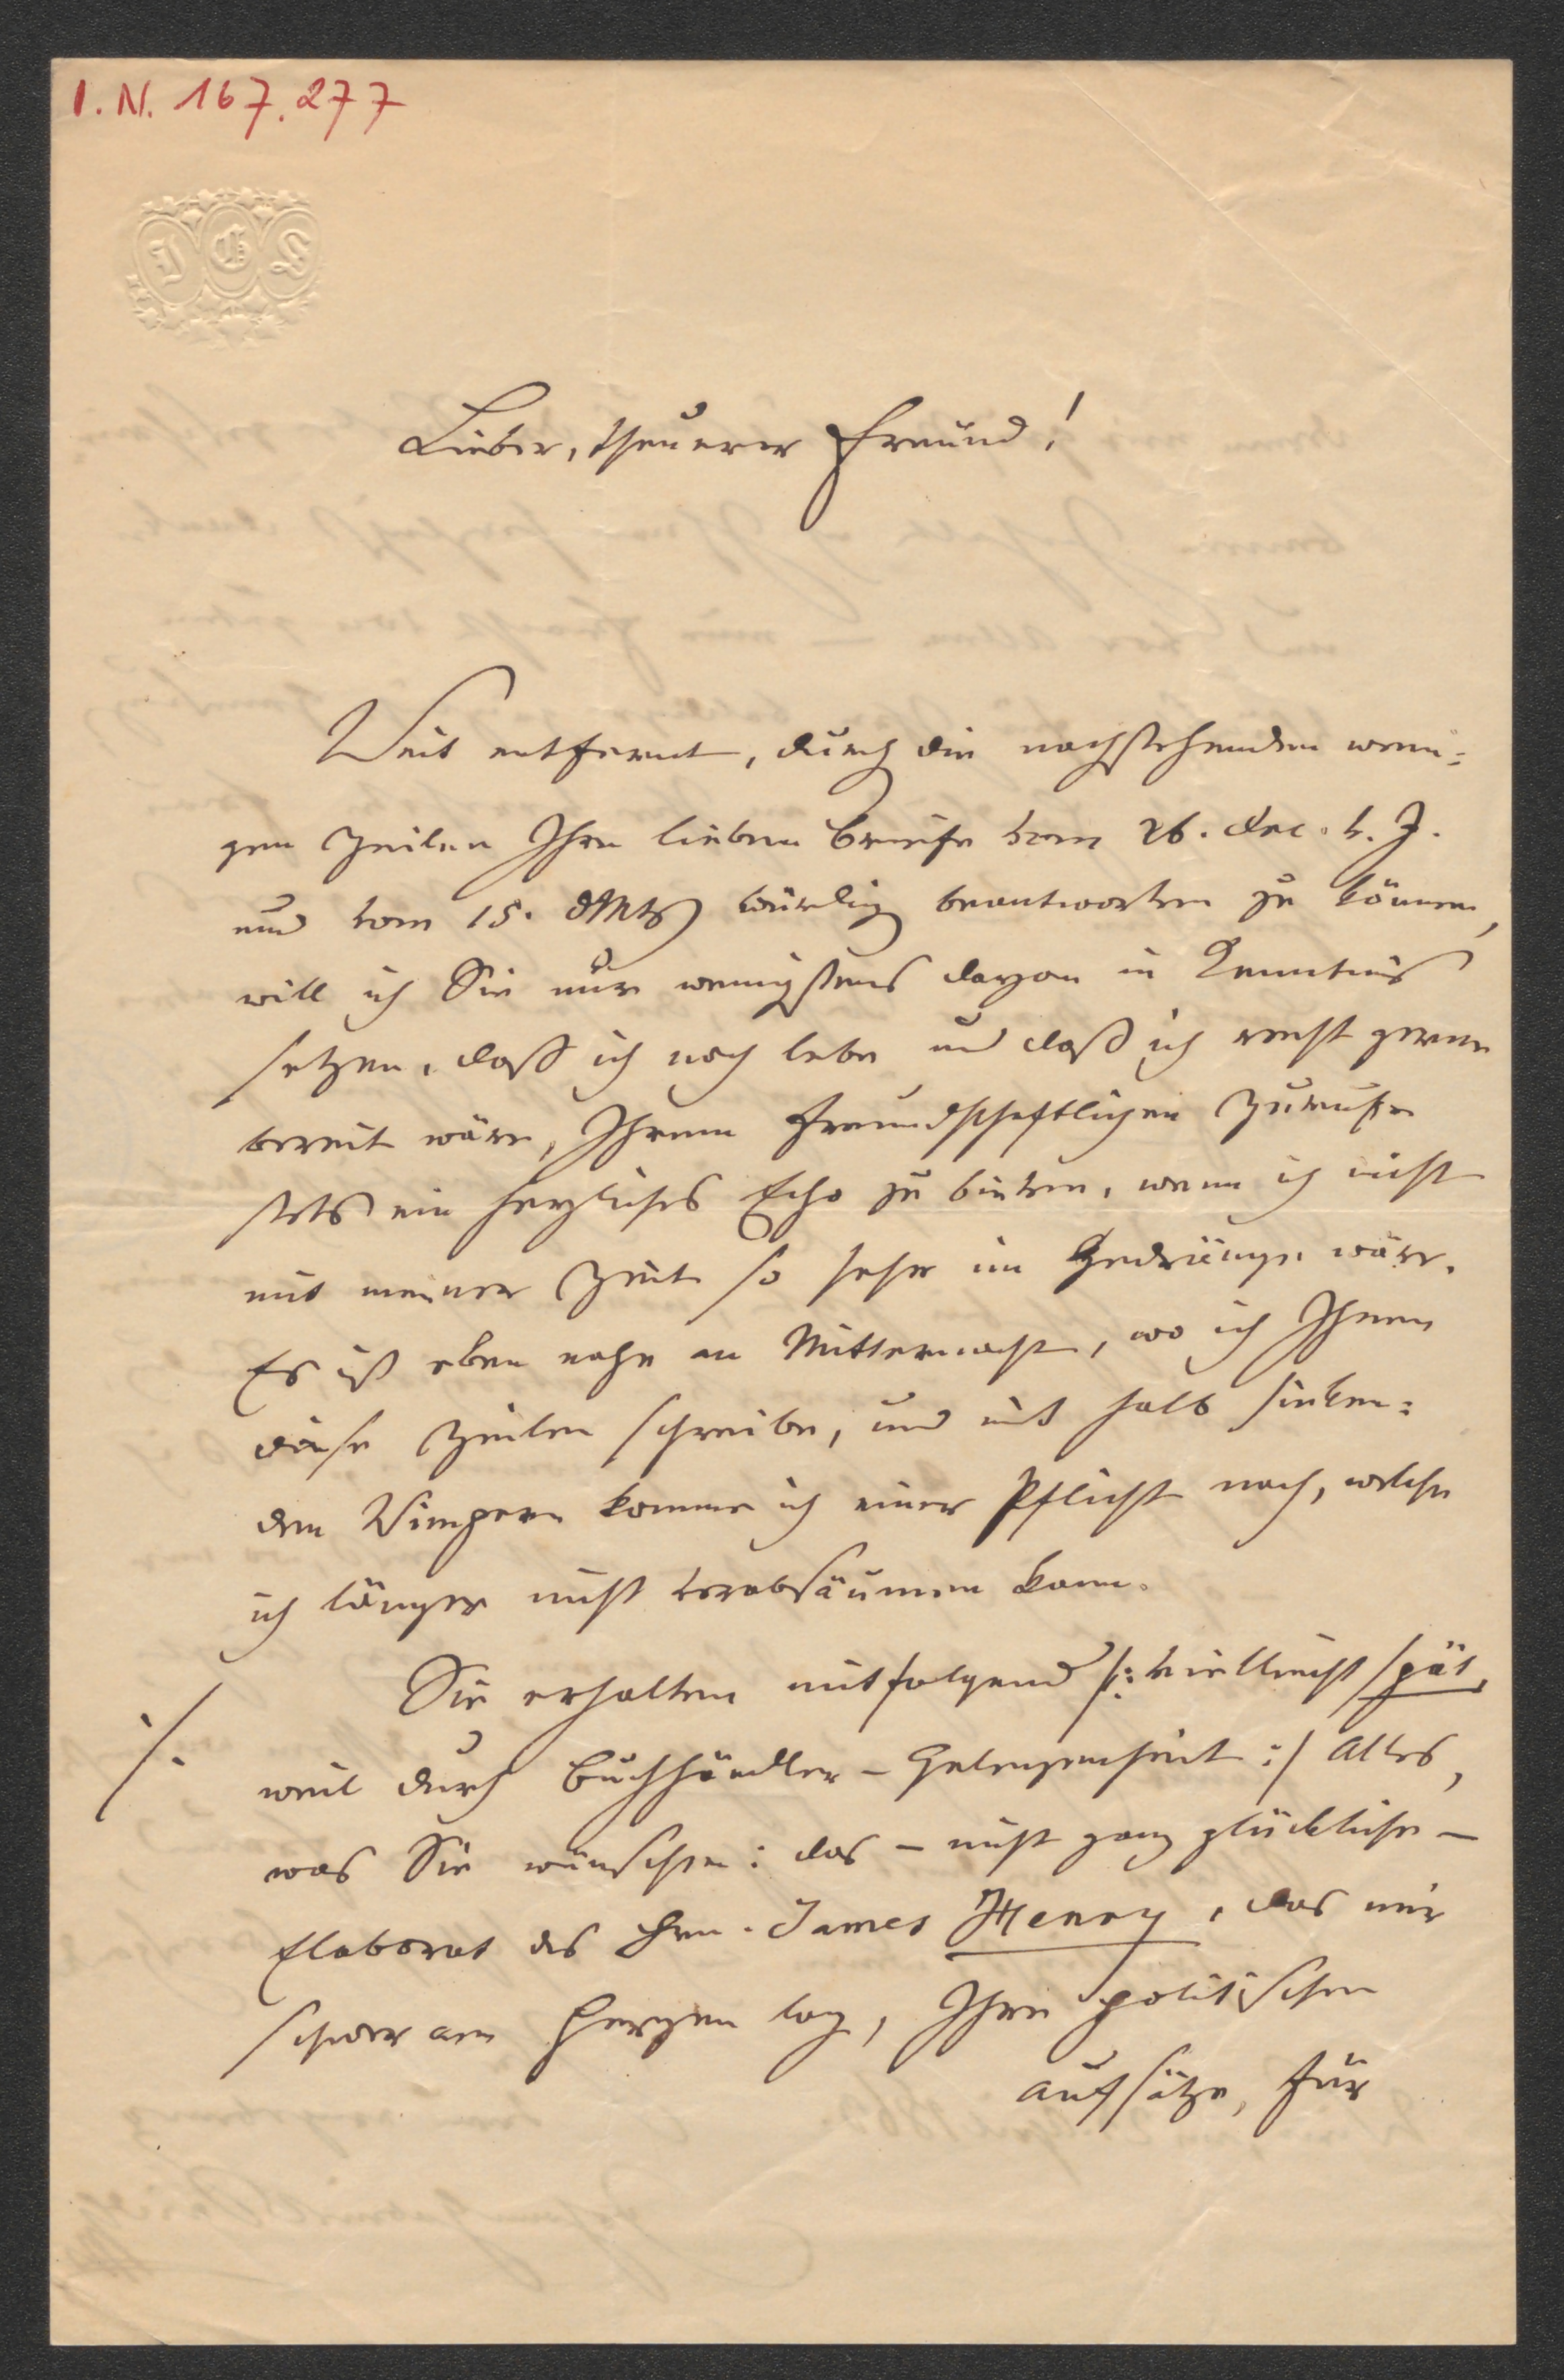 I. N. 167.277
J G S
Lieber, theuerer Freund!
Weit entfernt, durch die nachstehenden weni=
gen Zeilen Ihre lieben Briefe vom 26. Dec. v. J.
und vom 15. dMts würdig beantworten zu können,
will ich Sie nur wenigstens davon in Kenntniß
setzen, daß ich noch lebe und daß ich recht gerne
bereit wäre, Ihrem freundschaftlichen Zurufe
stets ein herzliches Echo zu bieten, wenn ich nicht
mit meiner Zeit so sehr im Gedränge wäre.
Es ist eben nahe an Mitternacht, wo ich Ihnen
diese Zeilen schreibe, und mit halb sinken=
den Wimpern komme ich einer Pflicht nach, welche
ich länger nicht verabsäumen kann.
Sie erhalten mitfolgend /: vielleicht spät,
./. weil durch Buchhändler-Gelegenheit :/ Alles,
was Sie wünschen: das – nicht ganz glückliche –
Elaborat des Hrn. James Henry, das mir
schwer am Herzen lag, Ihre politischen
Aufsätze, für